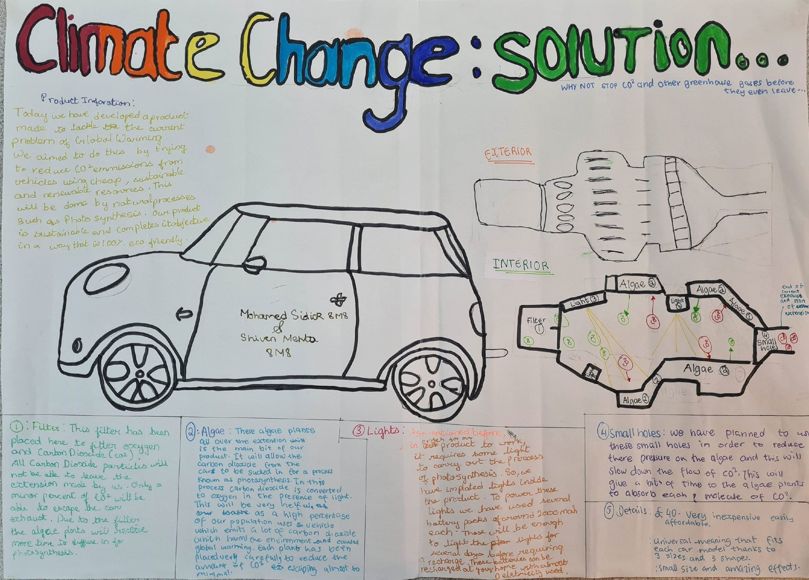 Climate Change: SOLUTION...
WHY NOT STOP CO² and other greenhouse gases before
they even leave...
Product Inforation:
Today we have developed a product
made to tackle the current
problem of Global Warming
We aimed to do this by trying
to reduce CO² emmissions from
vehicles using cheap, sustainable
and renewable resources. This
will be done by natural processes
such as Photosynthesis. Our product
is sustainable and completes its objective
in a way that is 100% eco friendly
EXTERIOR
INTERIOR
Mohamed 8M8
&
Shiven Mehta
8M8
Filter
①
Light ③
Algae ②
Light
Algae ②
Algae
Algae ②
Algae
④
Small
hole
① : Filter: This filter has been
placed here to filter oxygen
and Carbon Dioxide (CO²)
All Carbon Dioxide particles will
not be able to leave the
extension made by us. Only a
minor percent of CO² will be
able to escape the car
exhaust. Due to the filter
the algae plants will have
more time to diffuse in for
photosynthesis.
② : Algae: These algae plants
all over the extension
is the main bit of our
product. It will allow the
carbon dioxide from the
car to be sucked in for a process
known as photosynthesis. In this
process carbon dioxide is converted
to oxygen in the presence of light.
This will be very helpful
as a high percentage
of our population uses a vehicle
which emits a lot of carbon dioxide
which harms the environment and causes
global warming. Each plant has been
placed very carefully to reduce the
amount of CO² escaping almost to
minimal.
③ Lights:
our product to work,
it requires some light
to carry out the process
of photosynthesis. So, we
have implied lights inside
the product. To power these
lights we have used several
battery packs of around 2000 mah
each. This will be enough
to light the lights for
several days before requiring
recharge. These batteries can be
recharged at your home with almost
n electricity used
④ Small holes: We have planned to use
these small holes in order to reduce
there pressure on the algae and this will
slow down the flow of CO². This will
give a bit of time to the algae plants
to absorb each molecule of CO².
⑤ Details: £40 - Very inexpensive easily
affordable.
· Universal meaning that fits
each car model thanks to
3 sizes and 3 shapes.
· Small size and amazing effects.